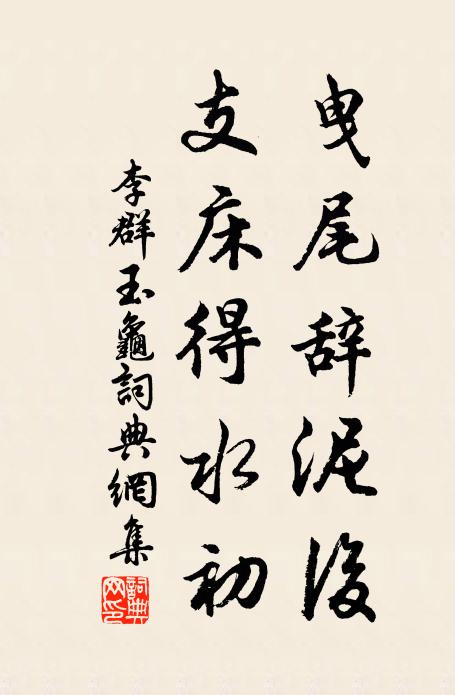 曳尾辞泥後
支床得水初
李群玉龜詞典網集
詞典網印